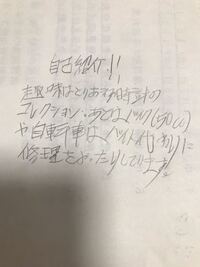 自己紹介!!
趣味はとりあえず時計の
コレクション、あとはバイク(50cc)
や自転車はバイト代わりに
修理をやったりしてます。